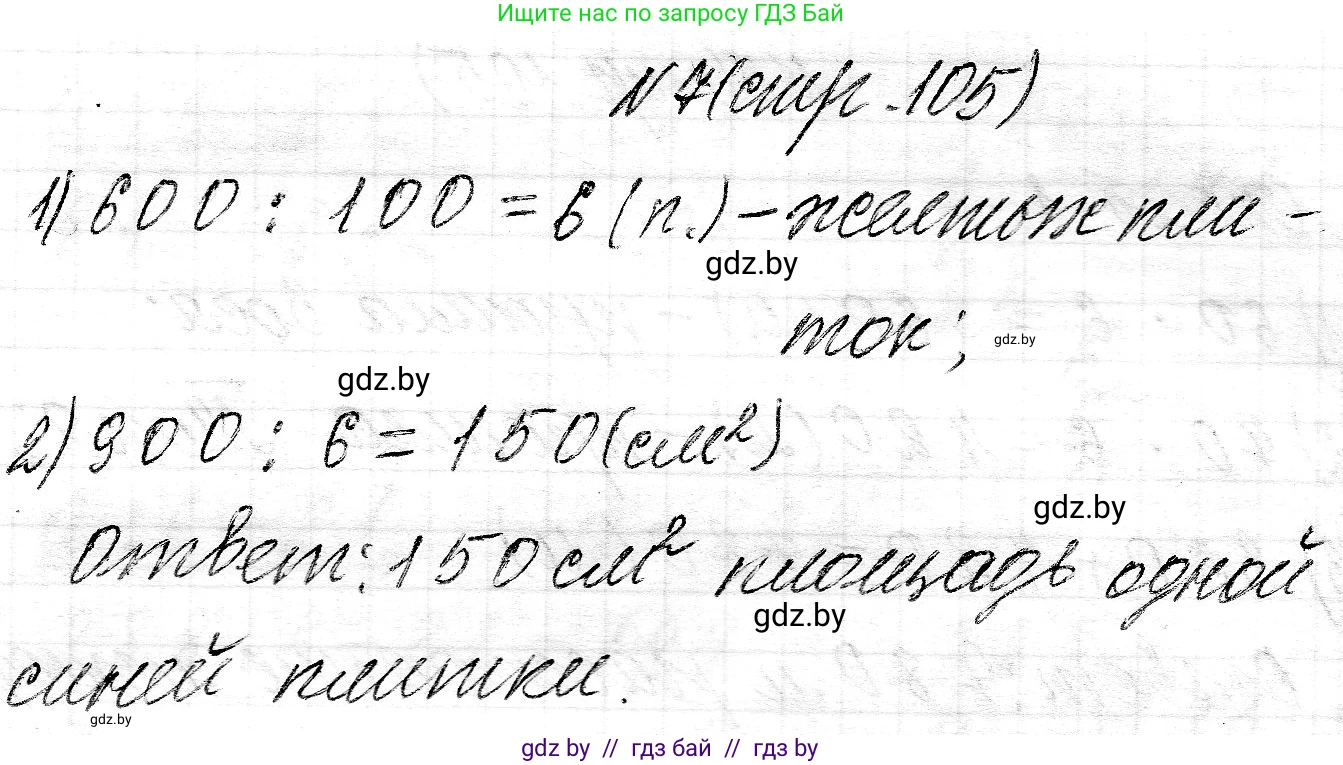 Ищите нас по запросу ГДЗ Бай
N 7 (стр. 105)
1) 600 : 100 = 6 (п.) – желтых пли -
gdz.by
ток;
gdz.by
gdz.by
2) 900 : 6 = 150 (см²)
gdz.by
Ответ: 150 см² площадь одной
gdz.by
синей плитки.
gdz.by
gdz by // гдз бай // гдз by